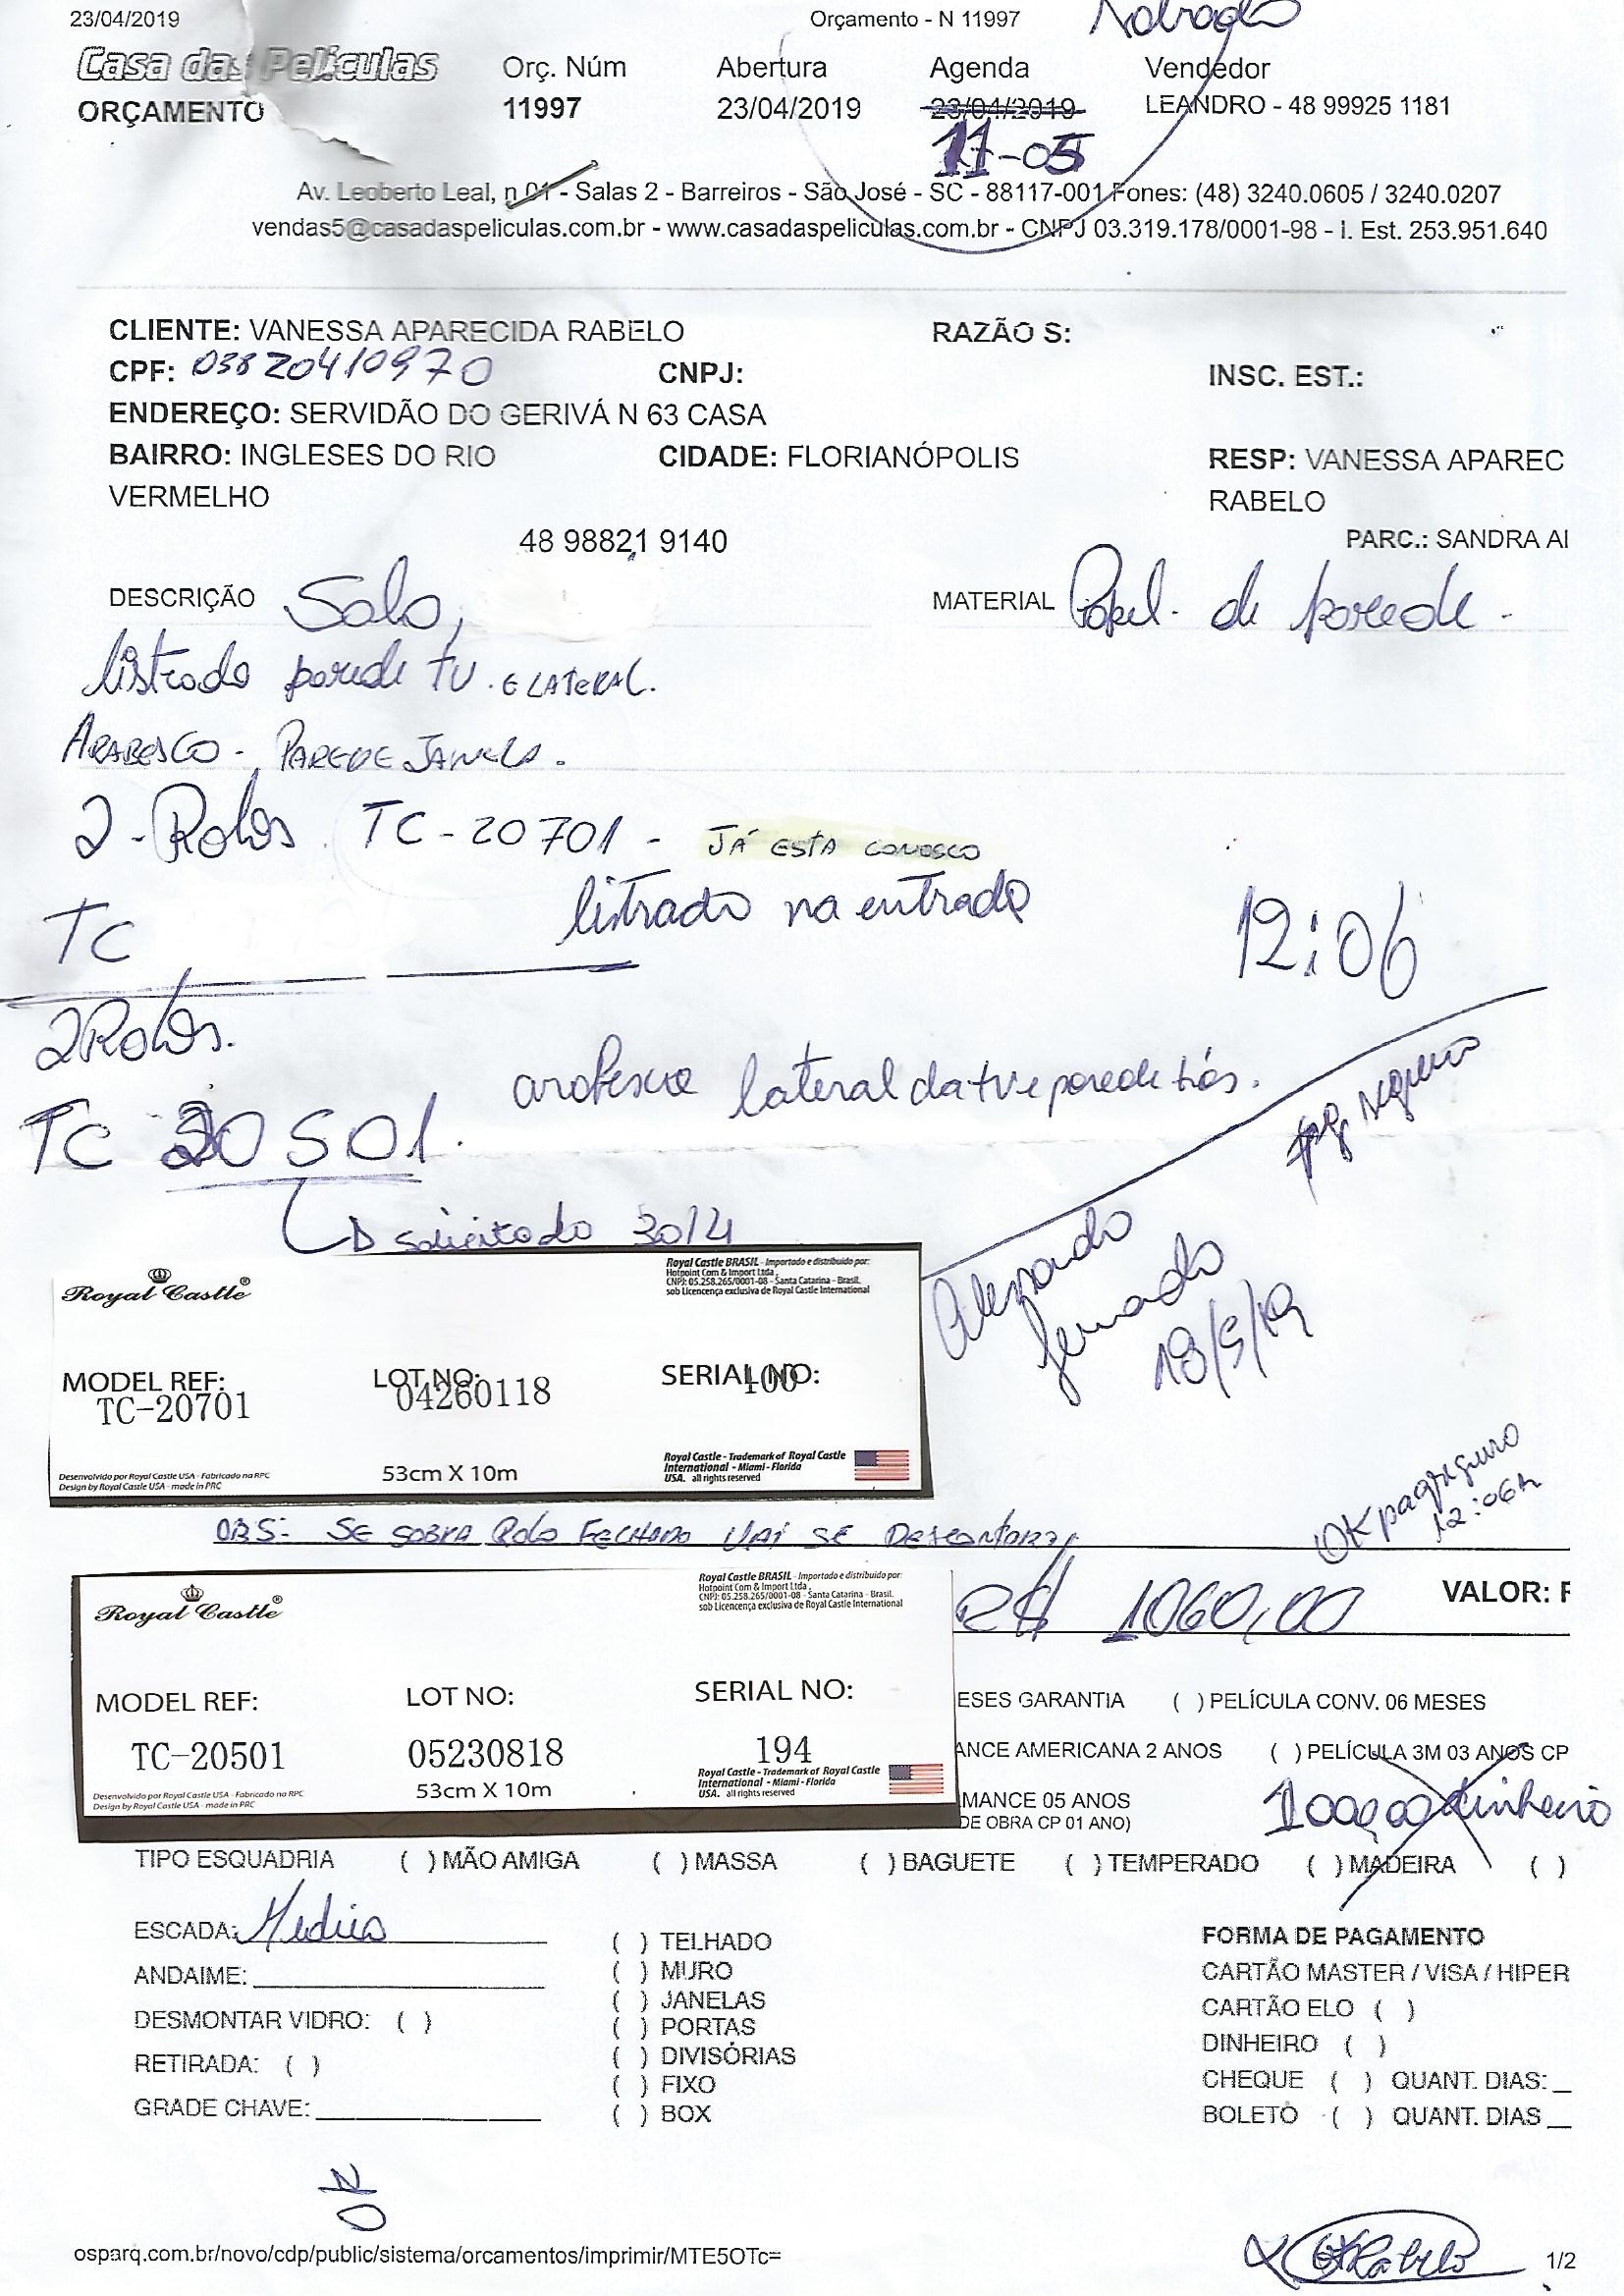 23/04/2019 Orçamento - N 11997
Casa das Películas Orç. Núm Abertura Agenda Vendedor
ORÇAMENTO 11997 23/04/2019 23/04/2019 LEANDRO - 48 99925 1181
11-05
Av. Leoberto Leal, n 01 - Salas 2 - Barreiros - São José - SC - 88117-001 Fones: (48) 3240.0605 / 3240.0207
vendas5@casadaspeliculas.com.br - www.casadaspeliculas.com.br - CNPJ 03.319.178/0001-98 - I. Est. 253.951.640
CLIENTE: VANESSA APARECIDA RABELO RAZÃO S:
CPF: 03820410970 CNPJ: INSC. EST.:
ENDEREÇO: SERVIDÃO DO GERIVÁ N 63 CASA
BAIRRO: INGLESES DO RIO CIDADE: FLORIANÓPOLIS RESP: VANESSA APAREC
VERMELHO RABELO
48 98821 9140 PARC.: SANDRA AI
DESCRIÇÃO Sala, MATERIAL Papel. de parede -
listrado parede TV. E LATERAL.
ARABESCO - PAREDE JANELA.
2 - Rolos. TC - 20701 - JÁ ESTA CONOSCO
TC listrado na entrada 12:06
2 Rolos.
TC 20501. arabesco lateral da tv e parede trás. pg seguro
solicitado 30/4
Alexandro
Fernando
18/5/19
Royal Castle® Royal Castle BRASIL - Importado e distribuido por:
Hotpoint Com & Import Ltda.
CNPJ: 05.258.265/0001-08 - Santa Catarina - Brasil.
sob Licencença exclusiva de Royal Castle International
MODEL REF: LOT NO: SERIAL NO:
TC-20701 04260118 100
53cm X 10m
Royal Castle - Trademark of Royal Castle
International - Miami - Florida
USA. all rights reserved
Desenvolvido por Royal Castle USA - Fabricado na RPC
Design by Royal Castle USA - made in PRC
OK pagseguro
12:06h
OBS: SE SOBRA ROLO FECHADO VAI SE DESCONTORA
Royal Castle® Royal Castle BRASIL - Importado e distribuido por:
Hotpoint Com & Import Ltda.
CNPJ: 05.258.265/0001-08 - Santa Catarina - Brasil.
sob Licencença exclusiva de Royal Castle International
R$ 1060,00 VALOR: F
MODEL REF: LOT NO: SERIAL NO:
TC-20501 05230818 194
53cm X 10m
Royal Castle - Trademark of Royal Castle
International - Miami - Florida
USA. all rights reserved
Desenvolvido por Royal Castle USA - Fabricado na RPC
Design by Royal Castle USA - made in PRC
ESES GARANTIA ( ) PELÍCULA CONV. 06 MESES
ANCE AMERICANA 2 ANOS ( ) PELÍCULA 3M 03 ANOS CP
MANCE 05 ANOS
DE OBRA CP 01 ANO)
1000,00 dinheiro
TIPO ESQUADRIA ( ) MÃO AMIGA ( ) MASSA ( ) BAGUETE ( ) TEMPERADO ( ) MADEIRA ( )
ESCADA: Media
ANDAIME:
DESMONTAR VIDRO: ( )
RETIRADA: ( )
GRADE CHAVE:
( ) TELHADO
( ) MURO
( ) JANELAS
( ) PORTAS
( ) DIVISÓRIAS
( ) FIXO
( ) BOX
FORMA DE PAGAMENTO
CARTÃO MASTER / VISA / HIPER
CARTÃO ELO ( )
DINHEIRO ( )
CHEQUE ( ) QUANT. DIAS: _
BOLETO ( ) QUANT. DIAS __
osparq.com.br/novo/cdp/public/sistema/orcamentos/imprimir/MTE5OTc= 1/2